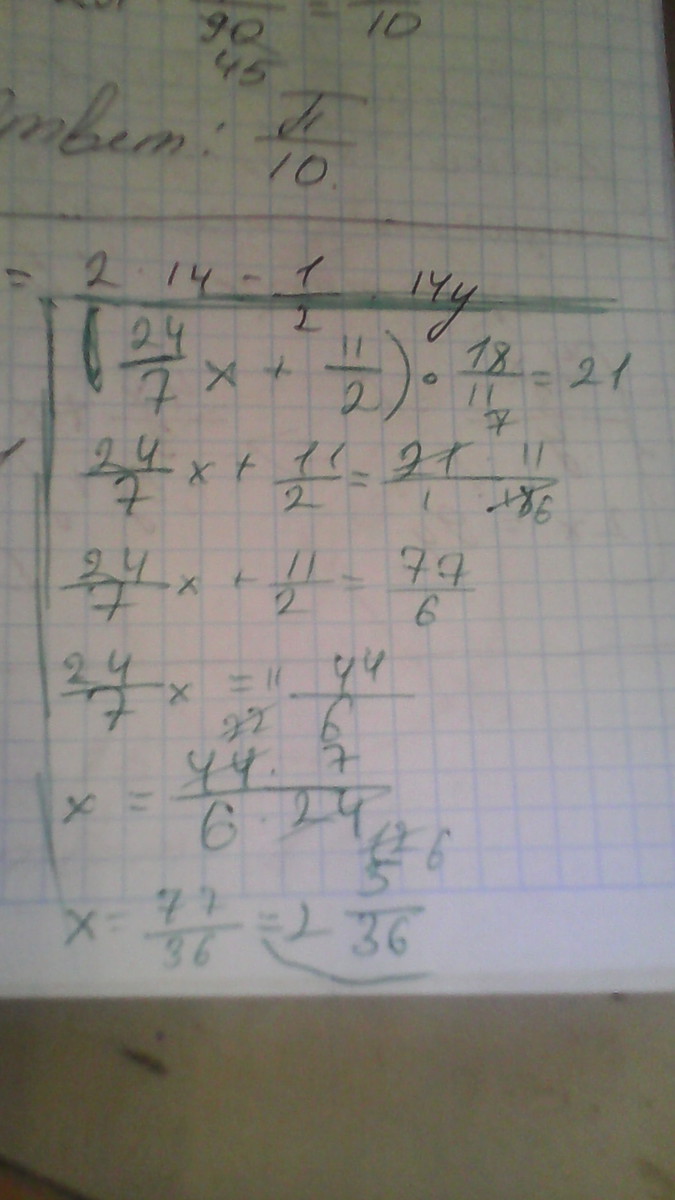 90 = 10
45
Ответ: π/10.
= 2 · 14 - 1/2 · 14y
(24/7 x + 11/2) · 18/11 = 21
24/7 x + 11/2 = 7 21 · 11 / 1 · 18 6
24/7 x + 11/2 = 77/6
24/7 x = 11 44/6
x = 22 44 · 7 / 6 · 24 12 6
x = 77/36 = 2 5/36